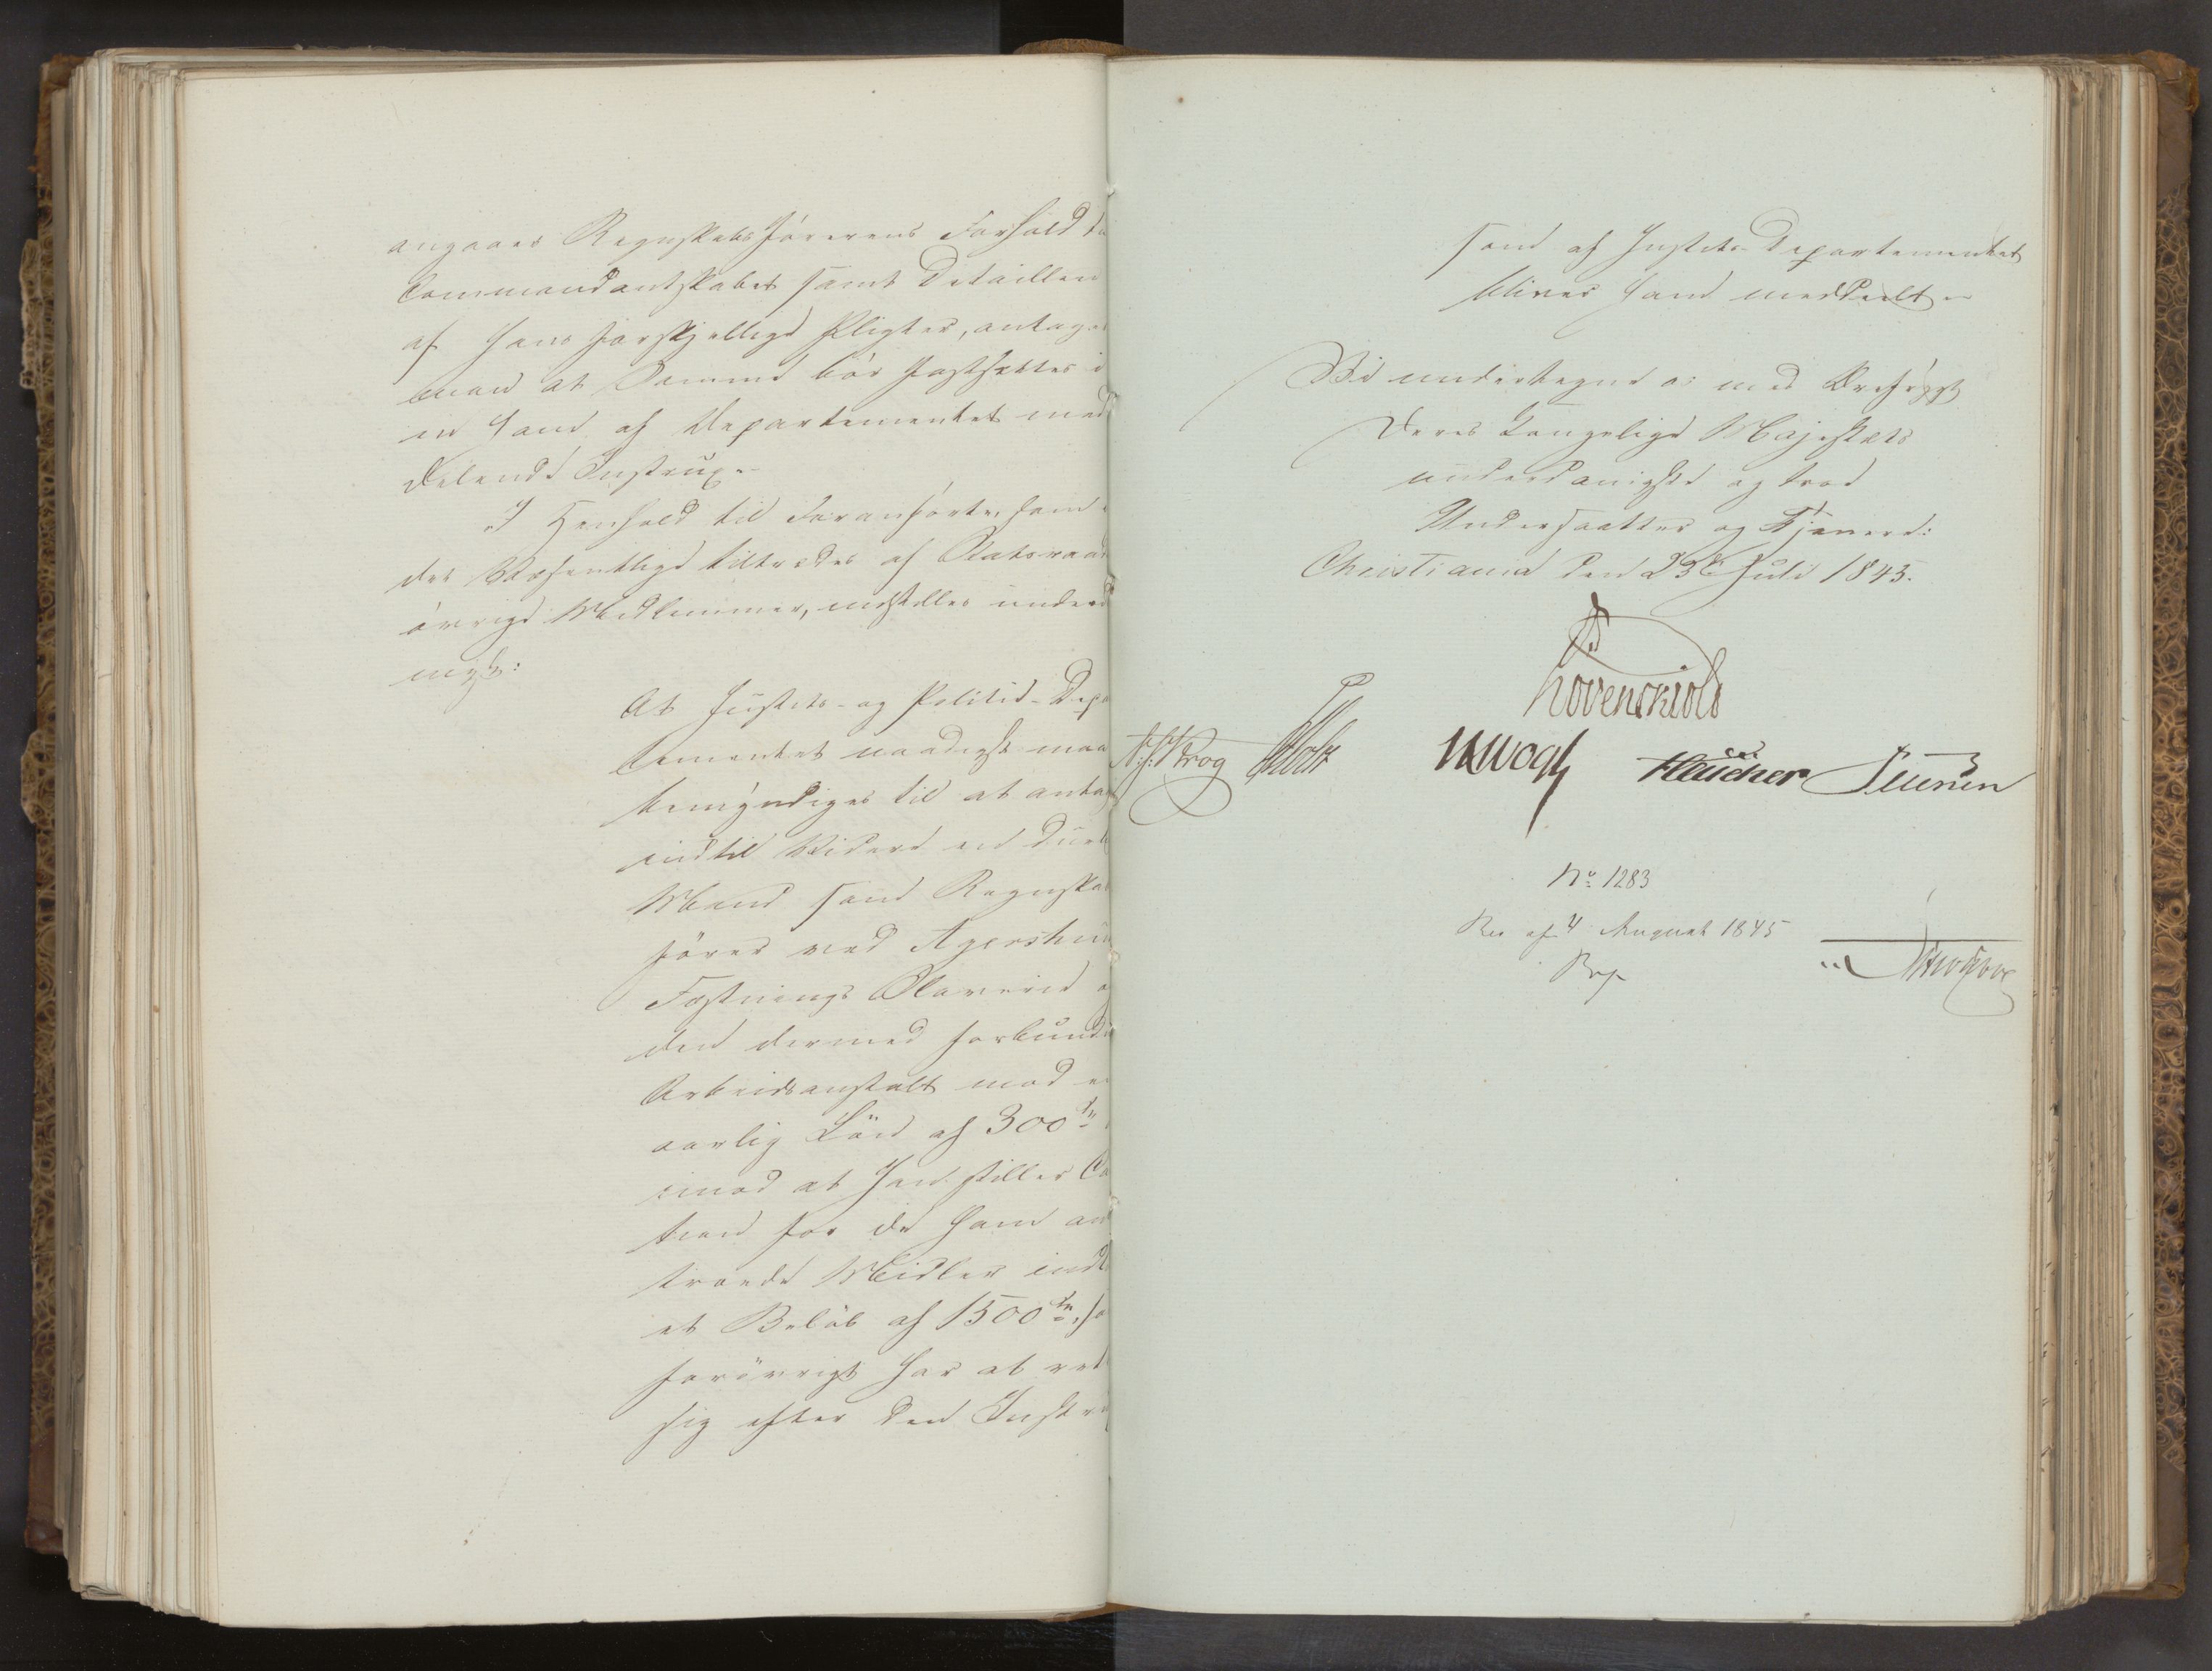 angaaer Regnskabsförerens Forhold ti
Commandantskabet samt Detaillen
af hans forskjellige Pligter, antager
man at Samme bör fastsættes i
en ham af Departementet med
delende Instrux.
I Henhold til Foranförte, som i
det Væsentlige tiltrædes af Statsraad
övrige Medlemmer, indstilles underd
nigst:
At Justits- og Politie-Depa
tementet naadigst maa
bemyndiges til at antag
indtil Videre en duel
Mand som Regnskab
förer ved Agershuu
Fæstnings Slaverie o
den dermed forbundn
Arbeidsanstalt mod e
aarlig Lön af 300
imod at han stiller Ca
tion for de ham an
troede Midler indt
et Belöb af 1500, sa
forövrigt har at rett
sig efter den Instru
som af Justits-Departementet
bliver ham meddeelt
Vi undertegne os med Ærefrygt
Deres Kongelige Majestæts
underdanigste og troe
Undersaatter og Tjenere:
Christiania den 23de Juli 1845.
Lövenskiold
Krog Holst Vogt
No 1283
Res af 4 August 1845